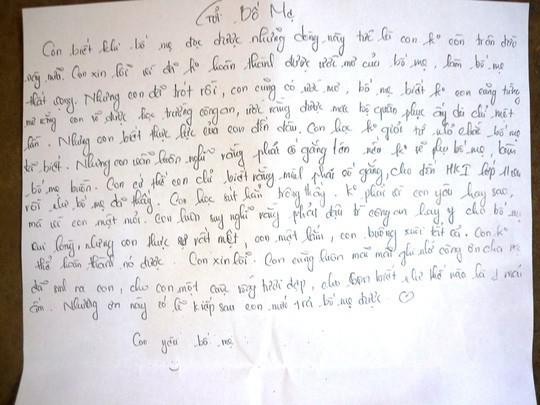 Gửi Bố Mẹ
Con biết khi bố mẹ đọc được những dòng này tức là con ko còn trên đời
này nữa. Con xin lỗi vì đã ko hoàn thành được ước mơ của bố mẹ, làm bố mẹ
thất vọng. Nhưng con đã trót rồi, con cũng có ước mơ, bố mẹ biết ko con cũng từng
mơ rằng con sẽ được học trường công an, ước rằng được mặc bộ quân phục ấy dù chỉ một
lần. Nhưng con biết thực lực của con đến đâu. Con học ko giỏi từ nhỏ chắc bố mẹ
đã biết. Nhưng con luôn luôn nghĩ rằng phải cố gắng lên nếu ko sẽ phụ bố mẹ, làm
bố mẹ buồn. Con có thể con chỉ biết rằng mình phải cố gắng, cho đến HKI lớp 11
rồi như bố mẹ đã thấy. Con học sút hẳn trông thấy. Ko phải vì con yêu hay sao
mà vì con mệt mỏi. Con luôn suy nghĩ rằng phải đậu trg công an hay y cho bố mẹ
vui lòng, nhưng con thực sự rất mệt, con mệt lắm, con buông xuôi tất cả. Con ko
thể hoàn thành nó được. Con xin lỗi. Con cũng luôn mãi mãi ghi nhớ công ơn cha mẹ
đã sinh ra con, cho con một cuộc sống tươi đẹp, cho con biết như thế nào là 1 mái
ấm. Nhưng ơn này có lẽ kiếp sau con mới trả bố mẹ được
Con yêu bố mẹ